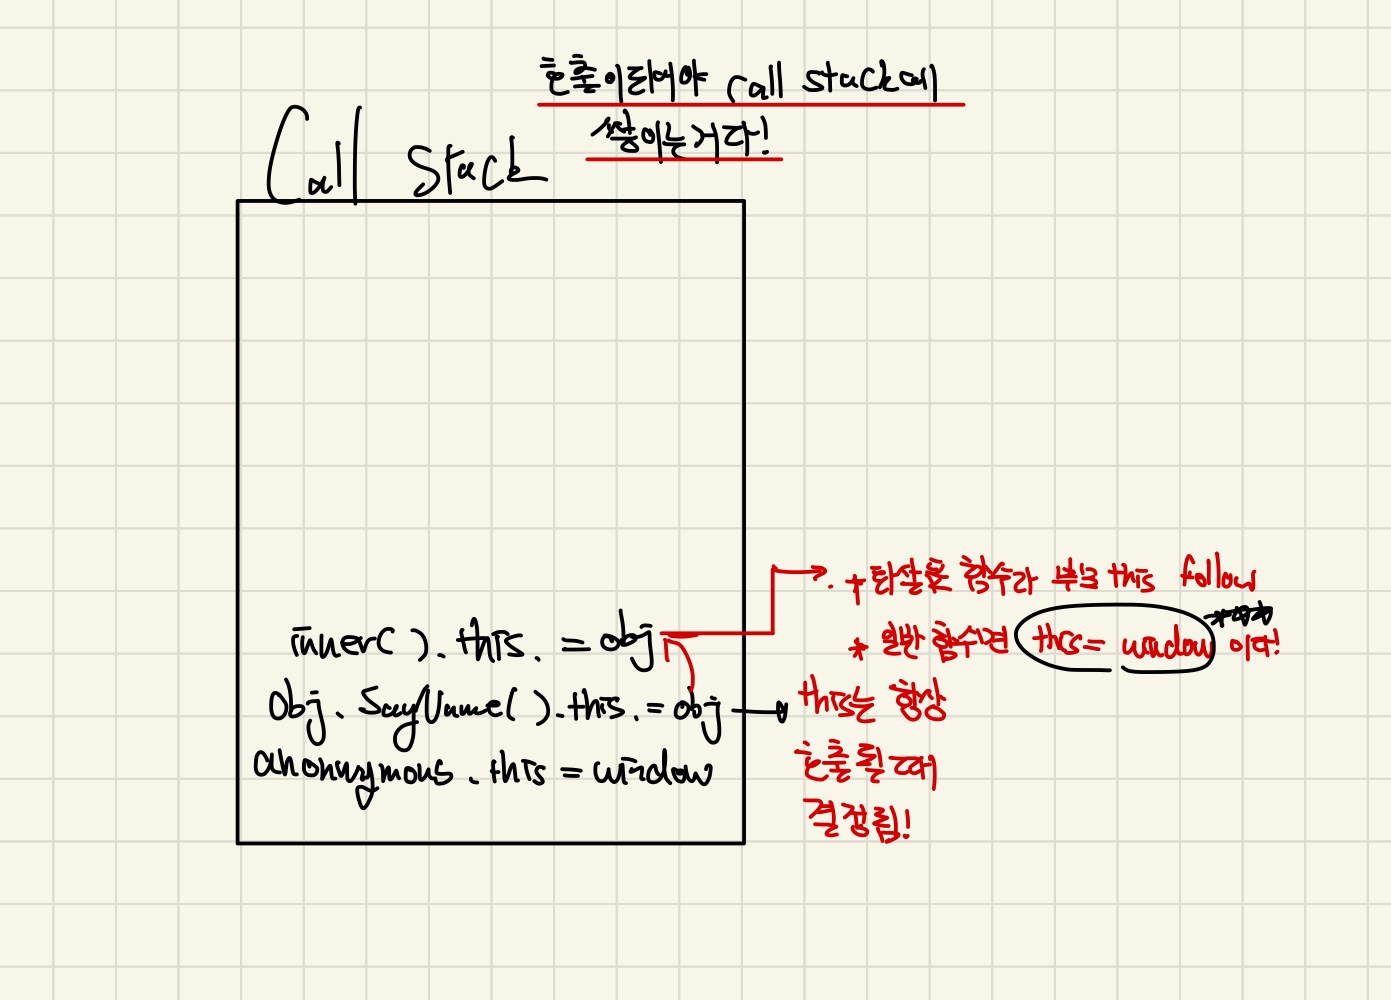 호출이되어야 call stack에
쌓이는거다!
Call Stack
* 화살표 함수라 부모 this follow
* 일반 함수면 this = window 이다!
inner().this. = obj
obj. SayName().this. = obj
this는 항상
호출 될 때
결정됨!
anonymous. this = window